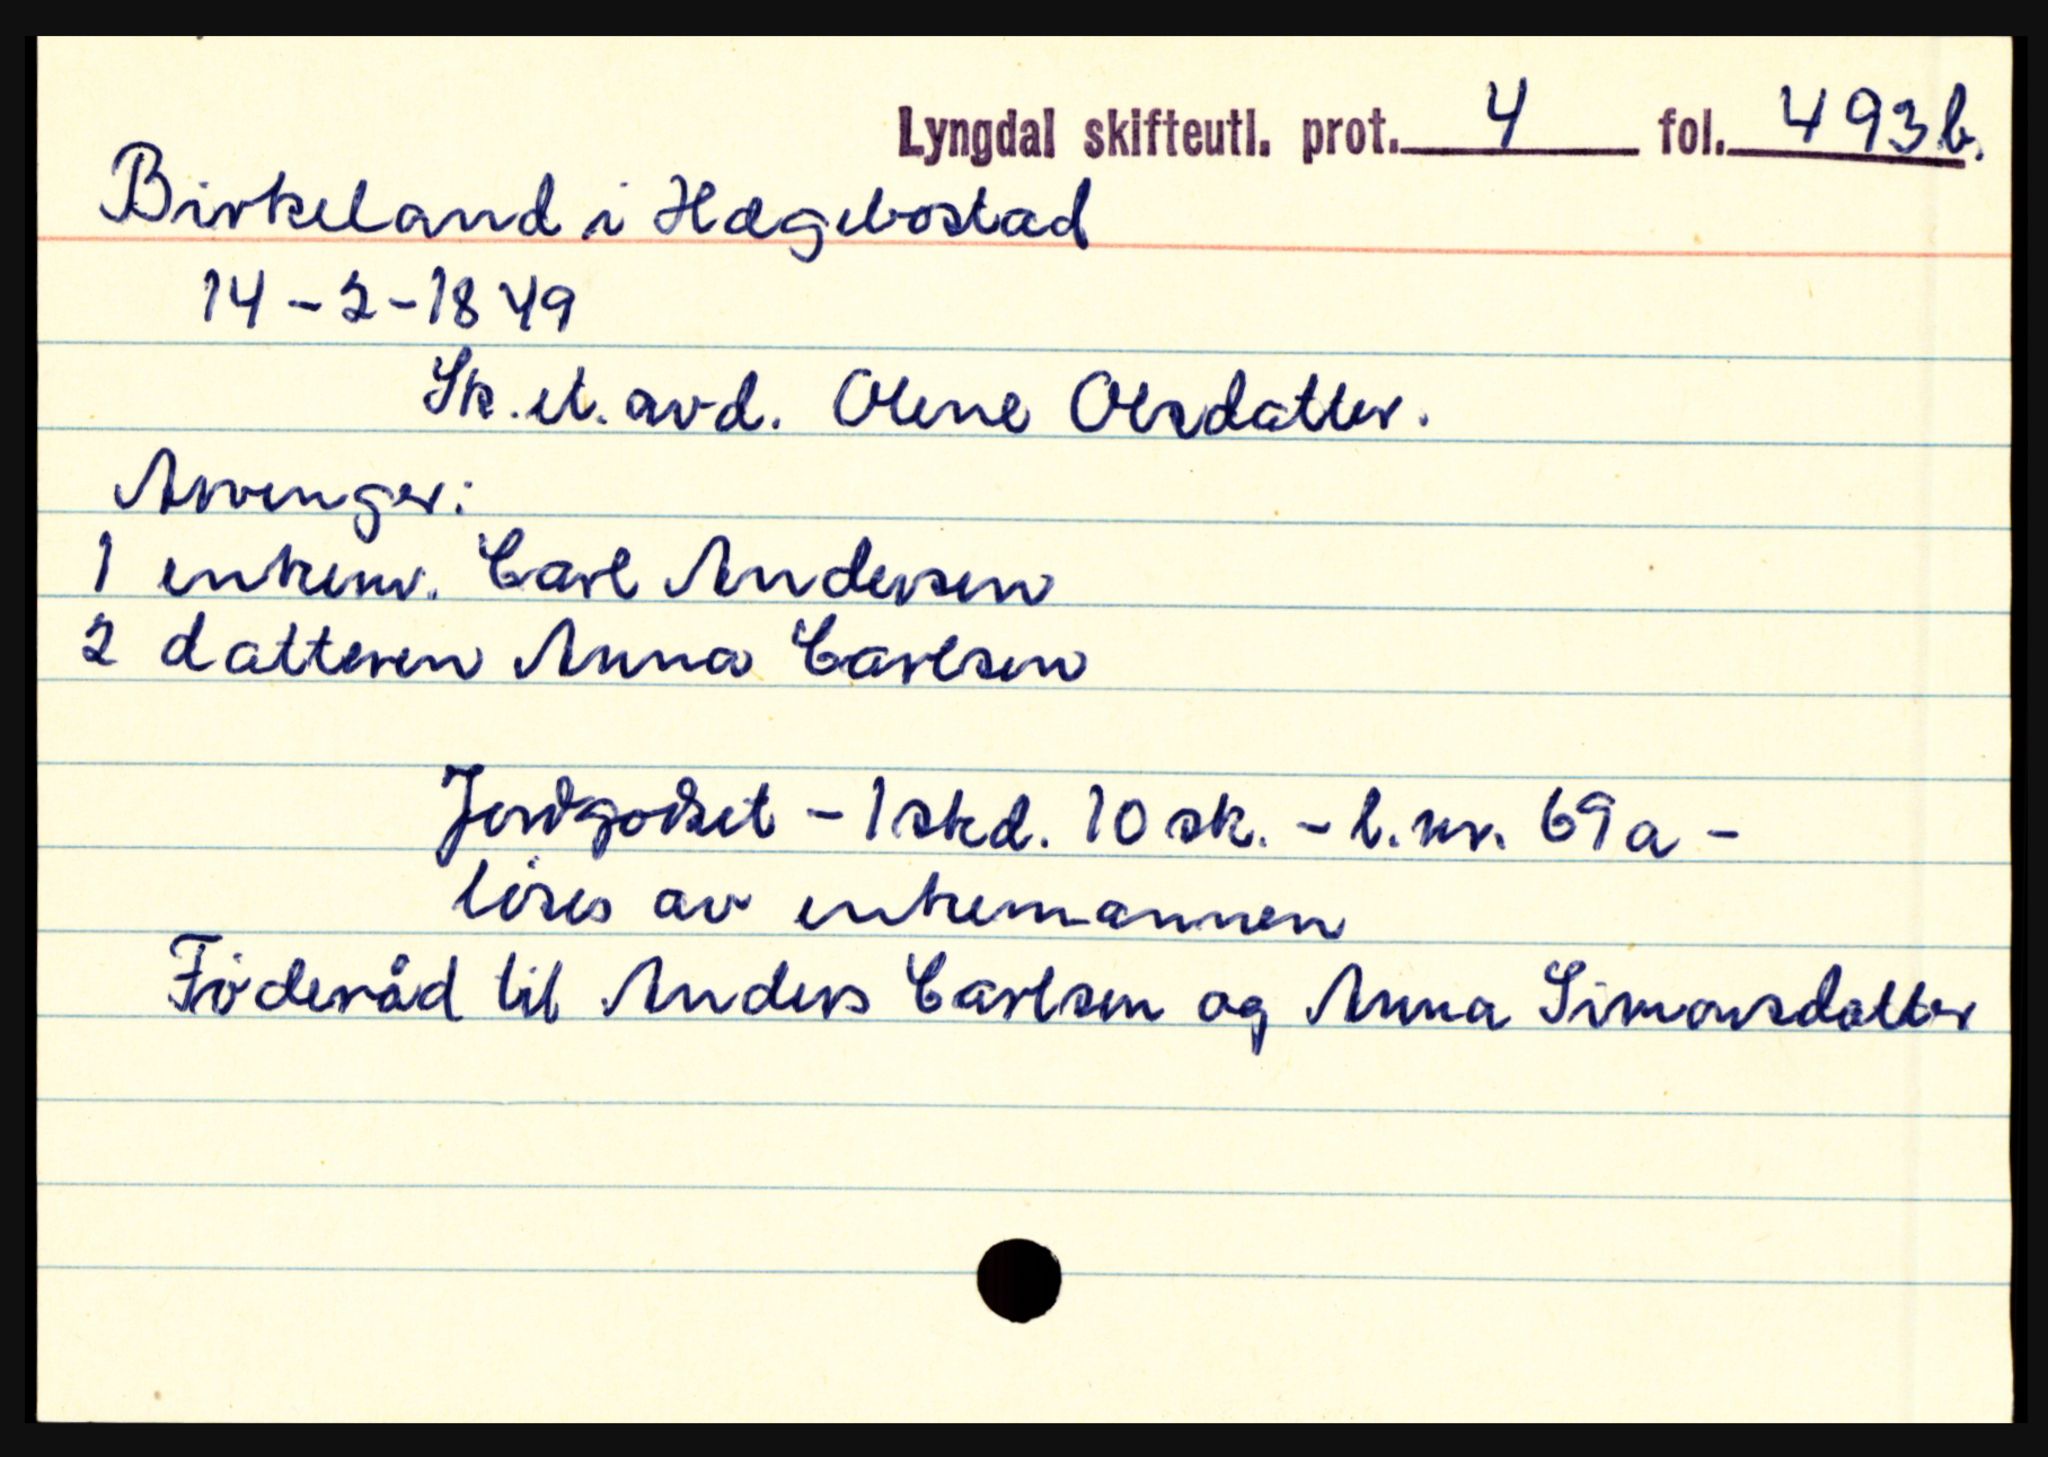 Lyngdal skifteutl. prot. 4 fol. 493b.
Birkeland i Hægebostad
14-2-1849
Sk. et. avd. Olene Olsdatter.
Arvinger:
1 enkem. Carl Andersen
2 datteren Anna Carlsen
Jordgodset - 1 skd. 10 sk. - l. nr. 69a -
löses av enkemannen
Föderåd til Anders Carlsen og Anna Simonsdatter